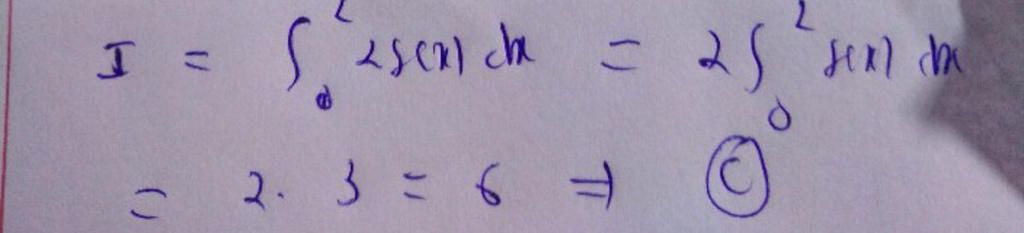 I = ∫₀² 2f(x) dx = 2∫₀² f(x) dx
= 2. 3 = 6 ⇒ Ⓒ